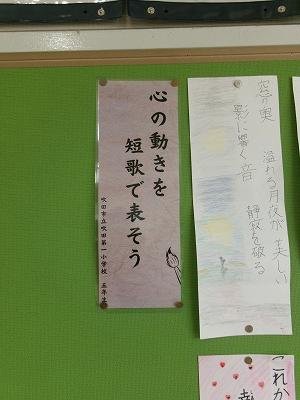 心の動きを
短歌で表そう
吹田市立吹田第一小学校 五年生
空の奥 溢れる月夜が美しい
影に響く音 静寂を破る
これか